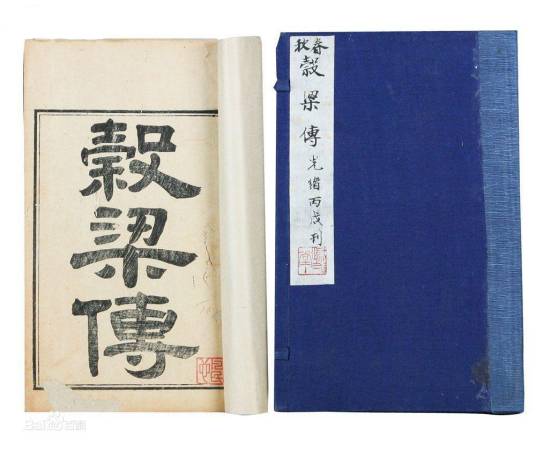 穀梁傳
春秋
穀梁傳光緒丙戌刊
Bai百科